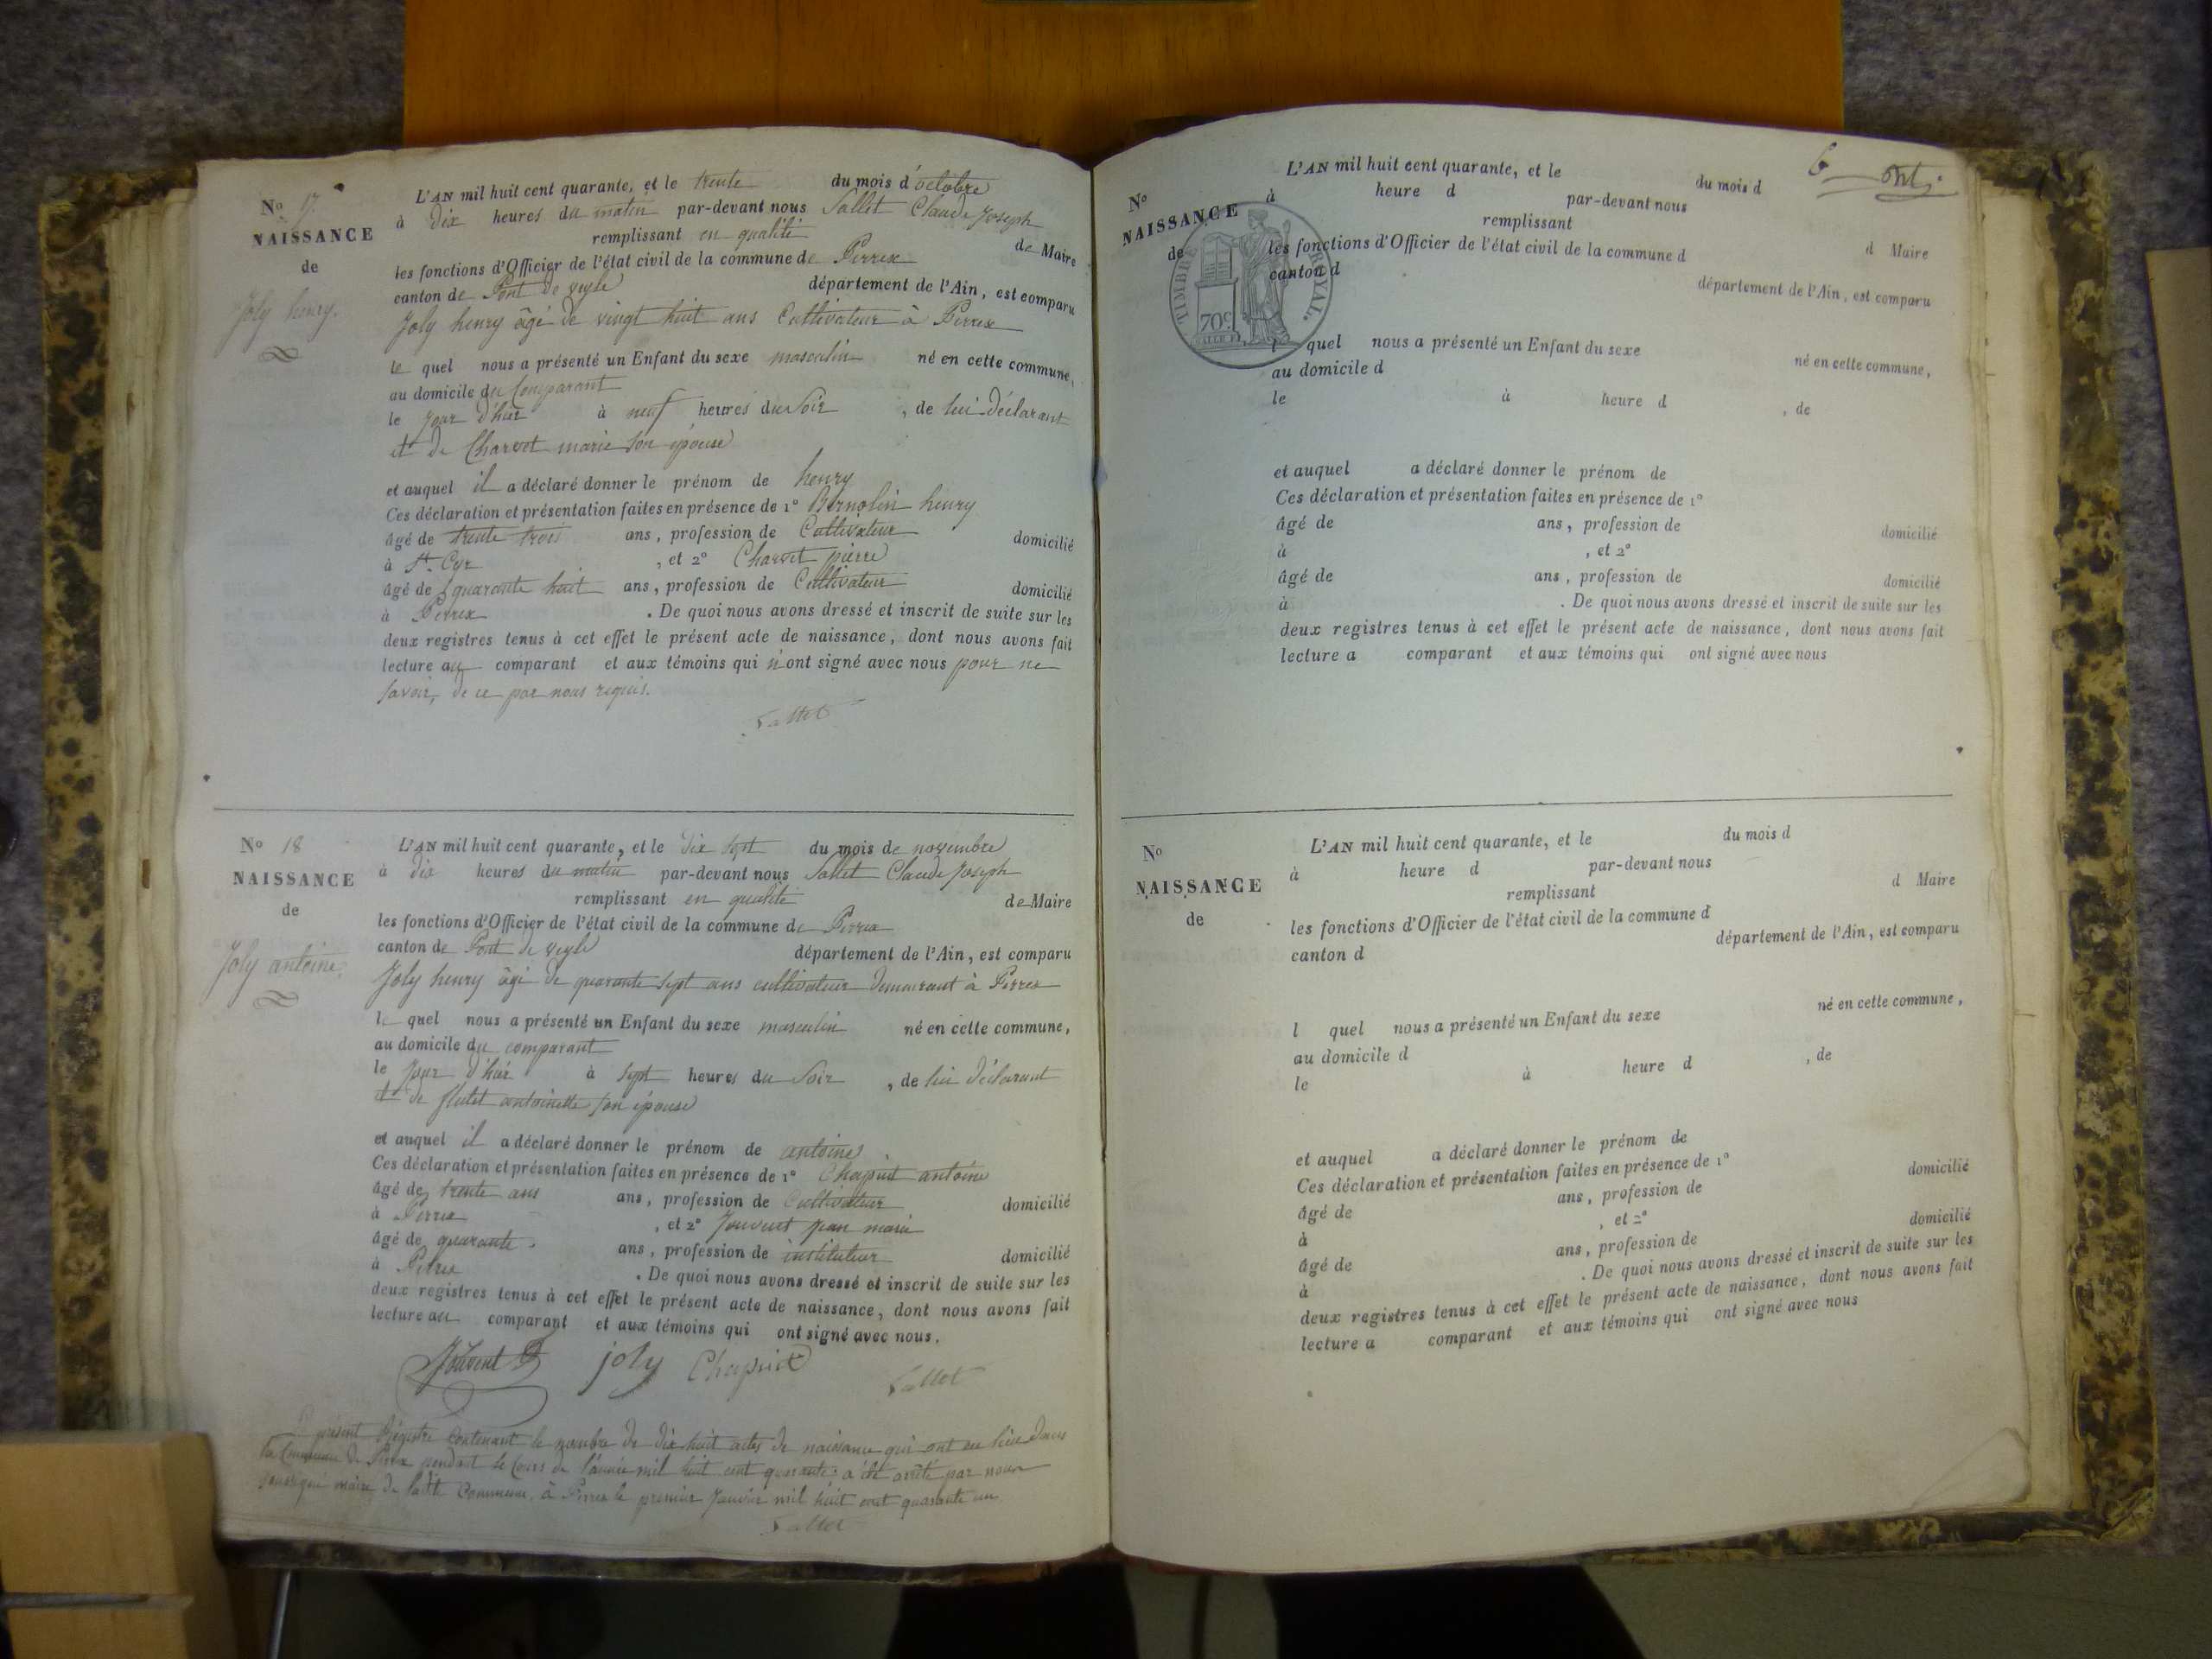 N° 17.
NAISSANCE
de
Joly henry.
L'AN mil huit cent quarante, et le trente du mois d'octobre
à dix heures du matin par-devant nous Sallet Claude Joseph
remplissant en qualité de Maire
les fonctions d'Officier de l'état civil de la commune de Perrex
canton de Pont de veyle département de l'Ain, est comparu
Joly henry âgé de vingt huit ans Cultivateur à Perrex
le quel nous a présenté un Enfant du sexe masculin né en cette commune,
au domicile du Comparant
le jour d'hier à neuf heures du Soir, de lui déclarant
et de Charvet marie son épouse
et auquel il a déclaré donner le prénom de henry
Ces déclaration et présentation faites en présence de 1° Bernolin henry
âgé de trente trois ans, profession de Cultivateur domicilié
à St. Cyr, et 2° Charvet pierre
âgé de quarante huit ans, profession de Cultivateur domicilié
à Perrex. De quoi nous avons dressé et inscrit de suite sur les
deux registres tenus à cet effet le présent acte de naissance, dont nous avons fait
lecture au comparant et aux témoins qui n'ont signé avec nous pour ne
savoir, de ce par nous requis.
Sallet
N° 18
NAISSANCE
de
Joly antoine.
L'AN mil huit cent quarante, et le dix sept du mois de novembre
à dix heures du matin par-devant nous Sallet Claude Joseph
remplissant en qualité de Maire
les fonctions d'Officier de l'état civil de la commune de Perrex
canton de Pont de veyle département de l'Ain, est comparu
Joly henry âgé de quarante sept ans cultivateur demeurant à Perrex
le quel nous a présenté un Enfant du sexe masculin né en cette commune,
au domicile du comparant
le jour d'hier à sept heures du Soir, de lui déclarant
et de flutet antoinette son épouse
et auquel il a déclaré donner le prénom de antoine
Ces déclaration et présentation faites en présence de 1° Chapuit antoine
âgé de trente ans ans, profession de Cultivateur domicilié
à Perrex, et 2° Jouvent jean marie
âgé de quarante. ans, profession de instituteur domicilié
à Perrex. De quoi nous avons dressé et inscrit de suite sur les
deux registres tenus à cet effet le présent acte de naissance, dont nous avons fait
lecture au comparant et aux témoins qui ont signé avec nous.
Jouvent joly Chapuit Sallet
Le présent Régistre contenant le nombre de dix huit actes de naissance qui ont eu lieu dans
la Commune de Perrex pendant le Cours de l'année mil huit cent quarante a été arrêté par nous
soussigné maire de ladite Commune, à Perrex le premier Janvier mil huit cent quarante un
Sallet
6
N°
NAISSANCE
de
TIMBRE ROYAL.
70c
L'AN mil huit cent quarante, et le du mois d
à heure d par-devant nous
remplissant d Maire
les fonctions d'Officier de l'état civil de la commune d
canton d département de l'Ain, est comparu
l quel nous a présenté un Enfant du sexe né en cette commune,
au domicile d
le à heure d , de
et auquel a déclaré donner le prénom de
Ces déclaration et présentation faites en présence de 1°
âgé de ans, profession de domicilié
à , et 2°
âgé de ans, profession de domicilié
à . De quoi nous avons dressé et inscrit de suite sur les
deux registres tenus à cet effet le présent acte de naissance, dont nous avons fait
lecture a comparant et aux témoins qui ont signé avec nous
N°
NAISSANCE
de
L'AN mil huit cent quarante, et le du mois d
à heure d par-devant nous
remplissant d Maire
les fonctions d'Officier de l'état civil de la commune d
canton d département de l'Ain, est comparu
l quel nous a présenté un Enfant du sexe né en cette commune,
au domicile d
le à heure d , de
et auquel a déclaré donner le prénom de
Ces déclaration et présentation faites en présence de 1°
âgé de ans, profession de domicilié
à , et 2°
âgé de ans, profession de domicilié
à . De quoi nous avons dressé et inscrit de suite sur les
deux registres tenus à cet effet le présent acte de naissance, dont nous avons fait
lecture a comparant et aux témoins qui ont signé avec nous